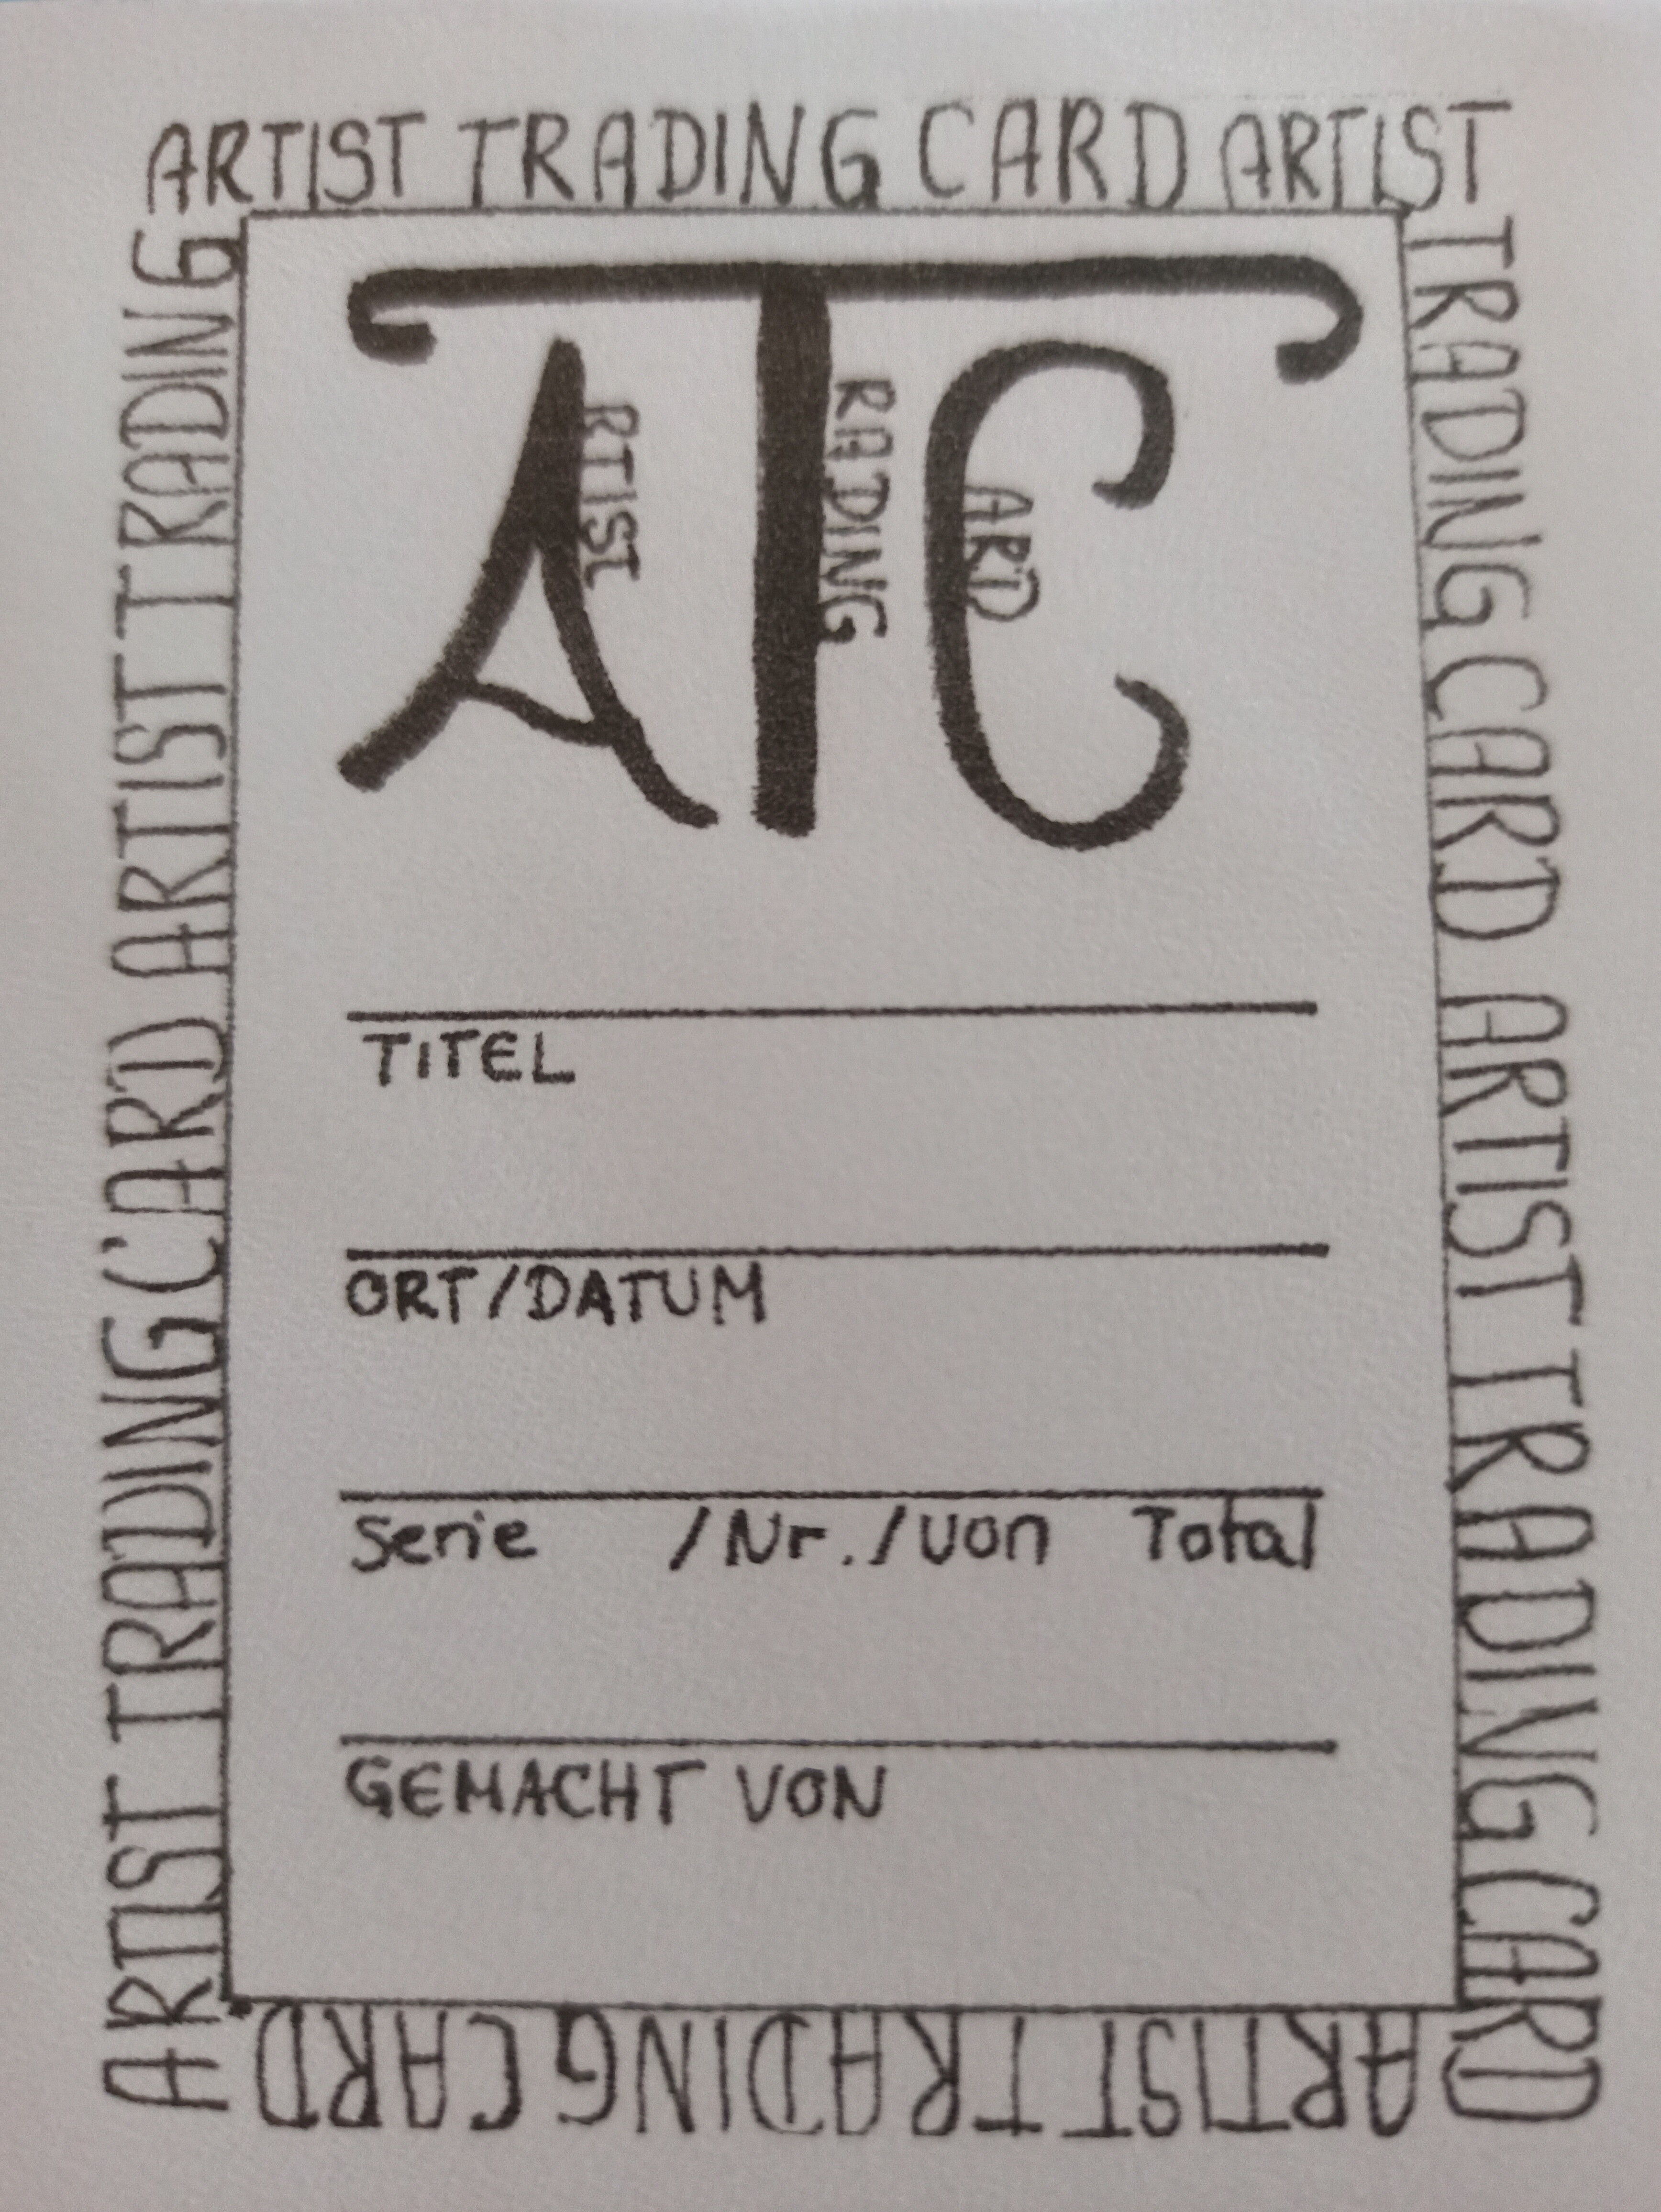 ARTIST TRADING CARD ARTIST
TRADING CARD ARTIST TRADING CARD
ARTIST TRADING CARD
ARTIST TRADING CARD ARTIST TRADING
ATC
RTIST
RADING
ARD
TITEL
ORT/DATUM
Serie /Nr./von Total
GEMACHT VON